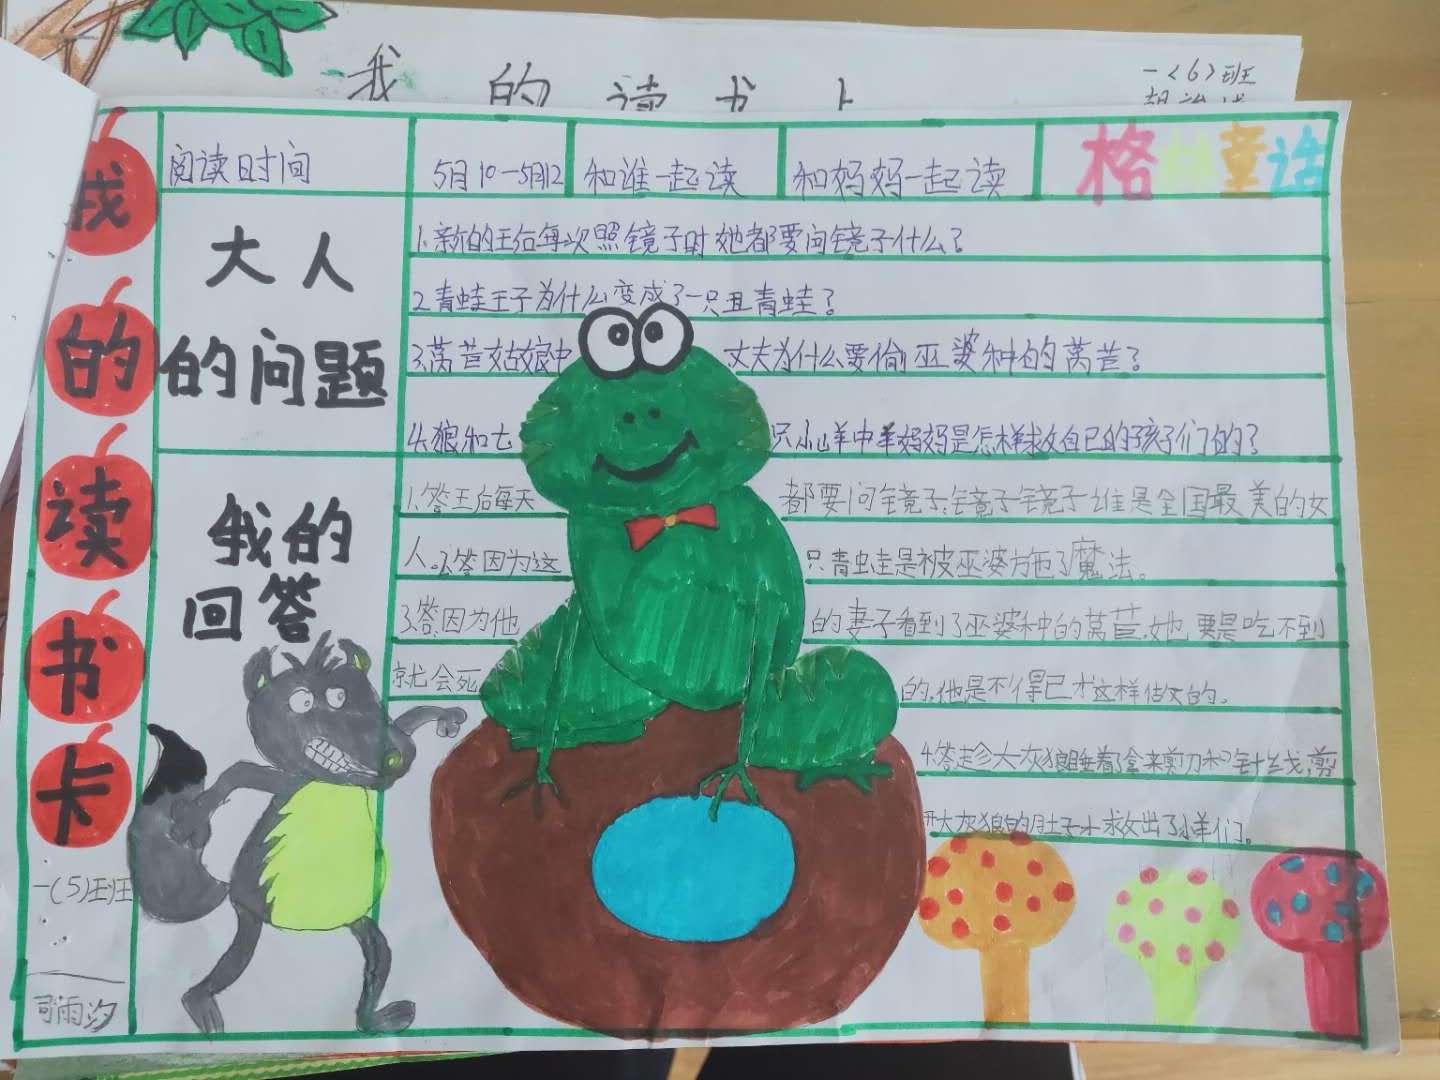 我 的 读 书 卡
一(6)班
我的读书卡
阅读时间 5月10-5月12 和谁一起读 和妈妈一起读 格林童话
大人的问题
1.新的王后每次照镜子时她都要问镜子什么？
2.青蛙王子为什么变成了一只丑青蛙？
3.莴苣姑娘中丈夫为什么要偷巫婆种的莴苣？
4.狼和七只小山羊中羊妈妈是怎样救自己的孩子们的？
我的回答
1.答王后每天都要问镜子:镜子镜子谁是全国最美的女
人。2.答因为这只青蛙是被巫婆施了魔法。
3.答因为他的妻子看到了巫婆种的莴苣,她要是吃不到
就会死的,他是不得已才这样做的。
4.答趁大灰狼睡着了拿来剪刀和针线,剪
开大灰狼的肚子才救出了小羊们。
一(5)班
司雨汐